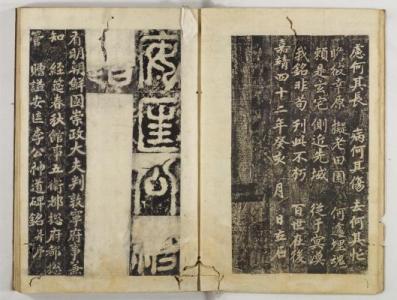 處何其長 病何其傷 去何其忙
原 擬老田園 何處埋魂
玄宅 側近先域 從子冥漠
我銘非苟 刊此不朽 百世在後
嘉靖四十二年癸亥 月 日立石
安匡公
有明朝鮮國崇政大夫判敦寧府事兼
知 經筵春秋館事五衛都摠府都摠
管 贈諡安匡李公神道碑銘 幷序